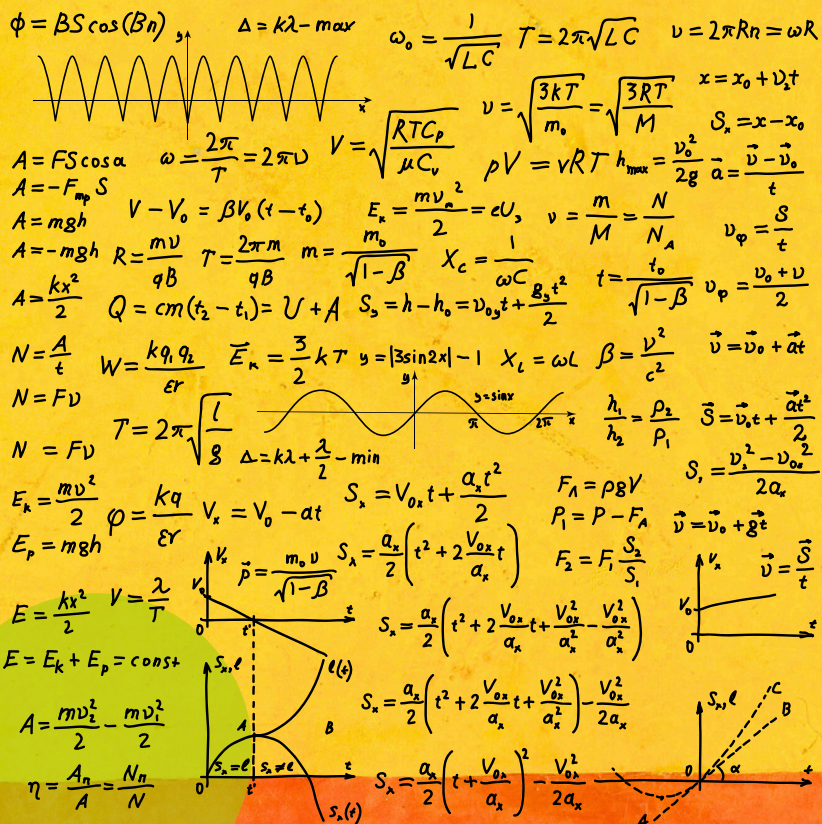 ϕ = BS cos(Bn)
Δ = kλ − max
y
x
ω₀ = 1/√(LC)
T = 2π√(LC)
υ = 2πRn = ωR
υ = √(3kT/m₀) = √(3RT/M)
x = x₀ + υ₂t
Sₓ = x − x₀
A = FS cos α
ω = 2π/T = 2πυ
V = √(RTCₚ/μCᵥ)
pV = νRT
hₘₐₓ = υ₀²/2g
a⃗ = (υ⃗ − υ⃗₀)/t
A = −Fₘₚ S
A = mgh
V − V₀ = βV₀(t − t₀)
Eₖ = mυₘ²/2 = eU₃
ν = m/M = N/N_A
υ_φ = S/t
A = −mgh
R = mυ/qB
T = 2πm/qB
m = m₀/√(1−β)
X_C = 1/ωC
t = t₀/√(1−β)
υ_φ = (υ₀ + υ)/2
A = kx²/2
Q = cm(t₂ − t₁) = U + A
S_y = h − h₀ = υ₀yt + g_yt²/2
N = A/t
W = kq₁q₂/εr
E⃗ₖ = 3/2 kT
y = |3sin2x| − 1
X_L = ωL
β = υ²/c²
υ⃗ = υ⃗₀ + a⃗t
N = Fυ
T = 2π√(l/g)
y
y = sinx
π
2π
x
h₁/h₂ = ρ₂/ρ₁
S⃗ = υ⃗₀t + a⃗t²/2
N = Fυ
Δ = kλ + λ/2 − min
Sₓ = V₀ₓt + aₓt²/2
F_A = ρgV
S₁ = (υₓ² − υ₀ₓ²)/2aₓ
Eₖ = mυ²/2
φ = kq/εr
Vₓ = V₀ − at
P₁ = P − F_A
υ⃗ = υ⃗₀ + g⃗t
Eₚ = mgh
Vₓ
V₀
0
t'
t
p⃗ = m₀υ/√(1−β)
Sₓ = aₓ/2 (t² + 2 V₀ₓ/aₓ t)
F₂ = F₁ S₂/S₁
Vₓ
V₀
0
t
υ⃗ = S⃗/t
E = kx²/2
V = λ/T
Sₓ = aₓ/2 (t² + 2 V₀ₓ/aₓ t + V₀ₓ²/aₓ² − V₀ₓ²/aₓ²)
E = Eₖ + Eₚ = const
Sₓ,l
l(t)
A
B
Sₓ = l
Sₓ ≠ l
0
t'
t
Sₓ(t)
Sₓ = aₓ/2 (t² + 2 V₀ₓ/aₓ t + V₀ₓ²/aₓ²) − V₀ₓ²/2aₓ
Sₓ,l
C
B
0
α
t
A
A = mυ₂²/2 − mυ₁²/2
η = Aₙ/A = Nₙ/N
Sₓ = aₓ/2 (t + V₀ₓ/aₓ)² − V₀ₓ²/2aₓ